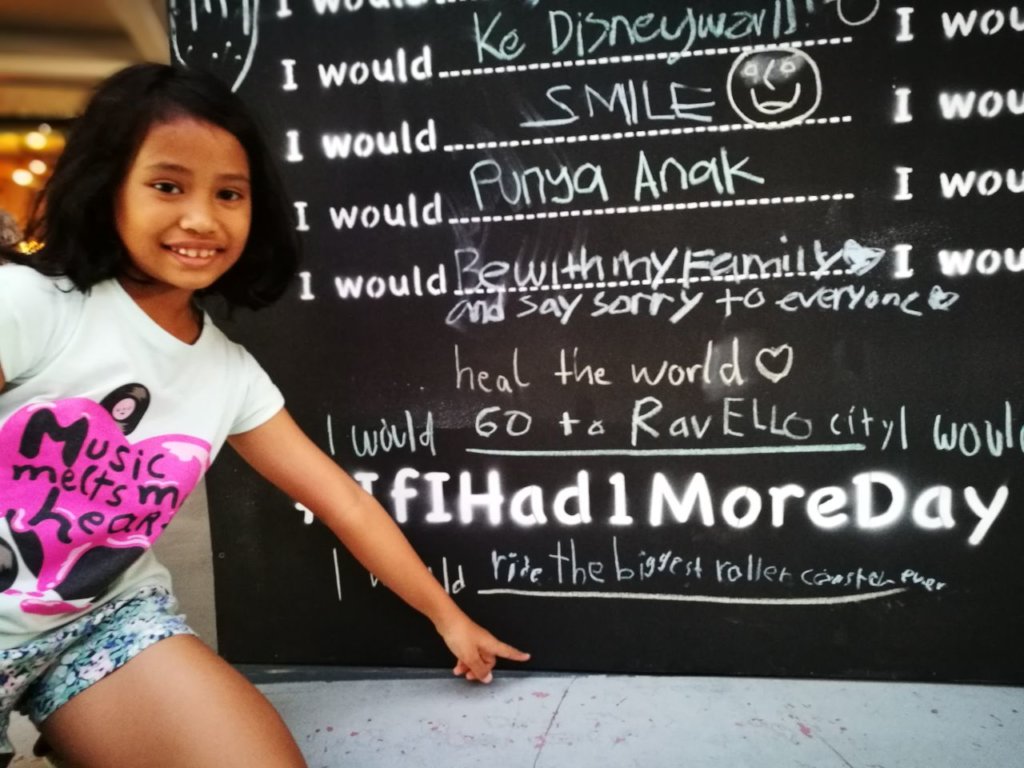 I would
Ke Disneyworld!
I would
I would SMILE
I wou
I would Punya Anak
I wou
I would Be with my Family
I wou
and say sorry to everyone
heal the world
I would GO to RavELLO city
I would
#IfIHad1MoreDay
I would ride the biggest roller coaster ever
Music
melts m
hear